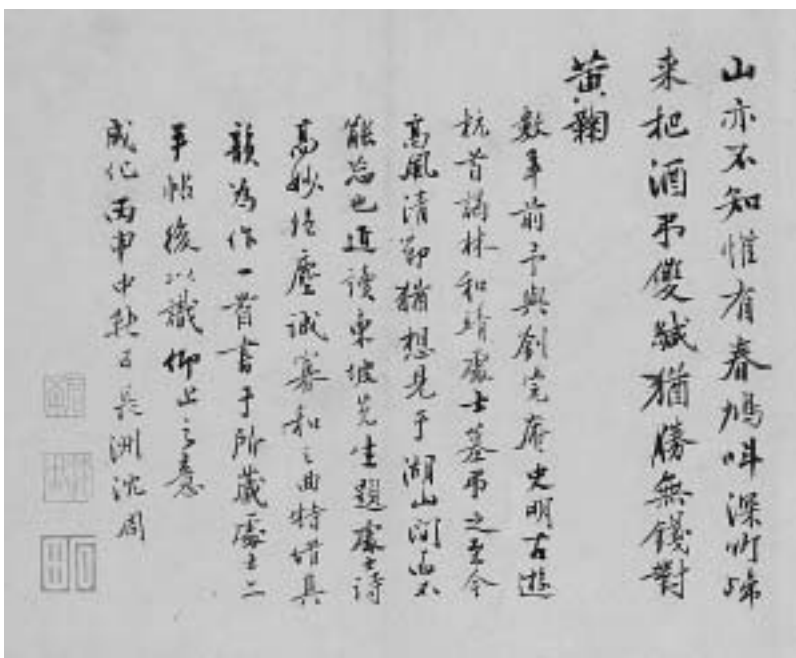 山亦不知惟有春鳩呌深竹歸
来把酒弔雙緘猶勝無錢對
黃鞠
數年前予與劉完庵史明古遊
杭首謁林和靖處士墓弔之至今
高風清節猶想見于湖山間而不
能忘也近讀東坡先生題處士詩
高妙絕塵誠寡和之曲特借其
韻為作一首書于所藏處士二
手帖後以識仰止之意
成化丙申中秋日長洲沈周